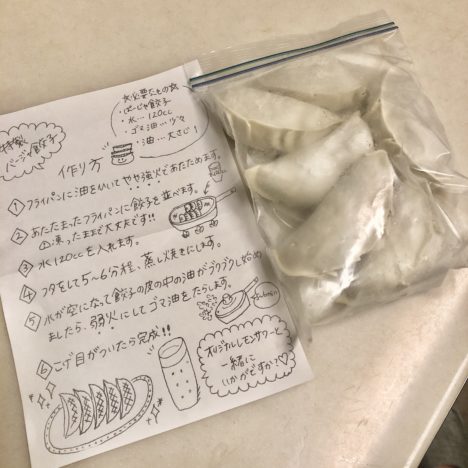 特製
バージャ餃子
☆必要なもの☆
・ばーじゃ餃子
・水…120cc
・ゴマ油…少々
・油…大さじ1
作り方
1 フライパンに油をひいてやや強火であたためます。
2 あたたまったフライパンに餃子を並べます。
⚠凍ったままで大丈夫です!!
3 水120ccを入れます。
4 フタをして5〜6分程、蒸し焼きにします。
5 水が空になって餃子の皮の中の油がブクブクし始め
ましたら、弱火にしてゴマ油をたらします。
6 こげ目がついたら完成!!
オリジナルレモンサワーと
一緒に
いかがですか?♡